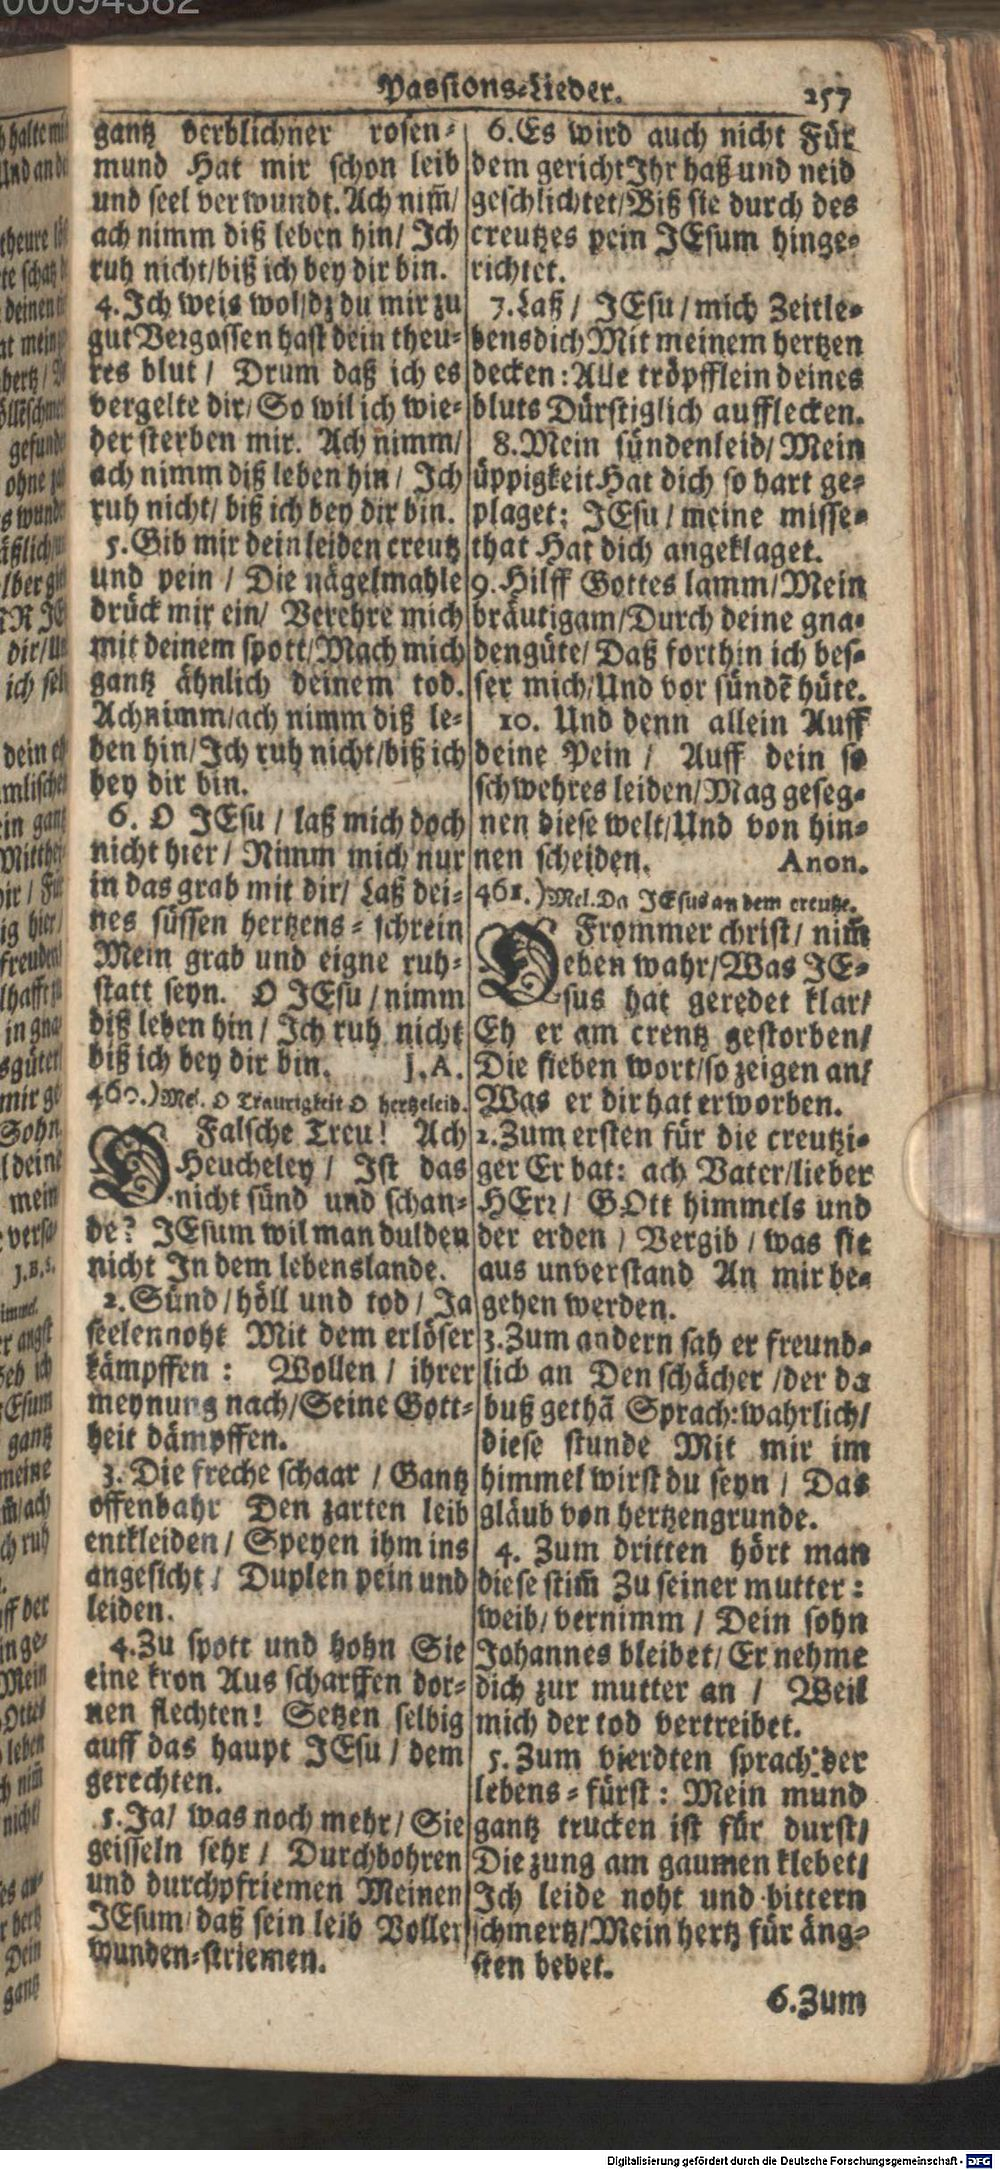 00094382
Passions-Lieder. 257
gantz verblichner rosen-
mund Hat mir schon leib
und seel verwundt. Ach nim̃/
ach nimm diß leben hin/ Ich
ruh nicht/biß ich bey dir bin.
4. Ich weis wol/dz du mir zu
gut Vergossen hast dein theu-
res blut / Drum daß ich es
vergelte dir/ So wil ich wie-
der sterben mir. Ach nimm/
ach nimm diß leben hin / Ich
ruh nicht/ biß ich bey dir bin.
5. Gib mir dein leiden creutz
und pein / Die nägelmahle
drück mir ein/ Verehre mich
mit deinem spott/Mach mich
gantz ähnlich deinem tod.
Ach nimm/ach nimm diß le-
ben hin/Ich ruh nicht/biß ich
bey dir bin.
6. O JEsu / laß mich doch
nicht hier / Nimm mich nur
in das grab mit dir/ Laß dei-
nes süssen hertzens-schrein
Mein grab und eigne ruh-
statt seyn. O JEsu / nimm
diß leben hin / Ich ruh nicht
biß ich bey dir bin. J.A.
460.) Mel. O Traurigkeit O hertzeleid.
O Falsche Treu! Ach
Heucheley / Ist das
nicht sünd und schan-
de? JEsum wil man dulden
nicht In dem lebenslande.
2. Sünd / höll und tod / Ja
seelennoht Mit dem erlöser
kämpffen : Wollen / ihrer
meynung nach/Seine Gott-
heit dämpffen.
3. Die freche schaar / Gantz
offenbahr Den zarten leib
entkleiden / Speyen ihm ins
angesicht / Duplen pein und
leiden.
4. Zu spott und hohn Sie
eine kron Aus scharffen dor-
nen flechten! Setzen selbig
auff das haupt JEsu / dem
gerechten.
5. Ja/ was noch mehr / Sie
geisseln sehr / Durchbohren
und durchpfriemen Meinen
JEsum/ daß sein leib Voller
wunden-striemen.
6. Es wird auch nicht Für
dem gericht Ihr haß und neid
geschlichtet/Biß sie durch des
creutzes pein JEsum hinge-
richtet.
7. Laß / JEsu / mich Zeitle-
bens dich Mit meinem hertzen
decken: Alle tröpfflein deines
bluts Dürstiglich aufflecken.
8. Mein sündenleid/ Mein
üppigkeit Hat dich so hart ge-
plaget: JEsu / meine misse-
that Hat dich angeklaget.
9. Hilff Gottes lamm/Mein
bräutigam/Durch deine gna-
dengüte/ Daß forthin ich bes-
ser mich/Und vor sündẽ hüte.
10. Und denn allein Auff
deine Pein / Auff dein so
schwehres leiden/Mag geseg-
nen diese welt/Und von hin-
nen scheiden. Anon.
461.) Mel. Da JEsus an dem creutze.
O Frommer christ/ nim̃
eben wahr/Was JE-
sus hat geredet klar/
Eh er am creutz gestorben/
Die sieben wort/so zeigen an/
Was er dir hat erworben.
2. Zum ersten für die creutzi-
ger Er bat: ach Vater/lieber
HErr/ GOtt himmels und
der erden / Vergib / was sie
aus unverstand An mir be-
gehen werden.
3. Zum andern sah er freund-
lich an Den schächer / der da
buß gethã Sprach: wahrlich/
diese stunde Mit mir im
himmel wirst du seyn / Das
gläub von hertzengrunde.
4. Zum dritten hört man
diese stim̃ Zu seiner mutter :
weib/ vernimm / Dein sohn
Johannes bleibet/ Er nehme
dich zur mutter an / Weil
mich der tod vertreibet.
5. Zum vierdten sprach der
lebens-fürst : Mein mund
gantz trucken ist für durst/
Die zung am gaumen klebet/
Ich leide noht und bittern
schmertz/Mein hertz für äng-
sten bebet.
6. Zum
Digitalisierung gefördert durch die Deutsche Forschungsgemeinschaft - DFG